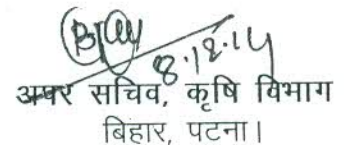 8.12.14
अपर सचिव, कृषि विभाग
बिहार, पटना।